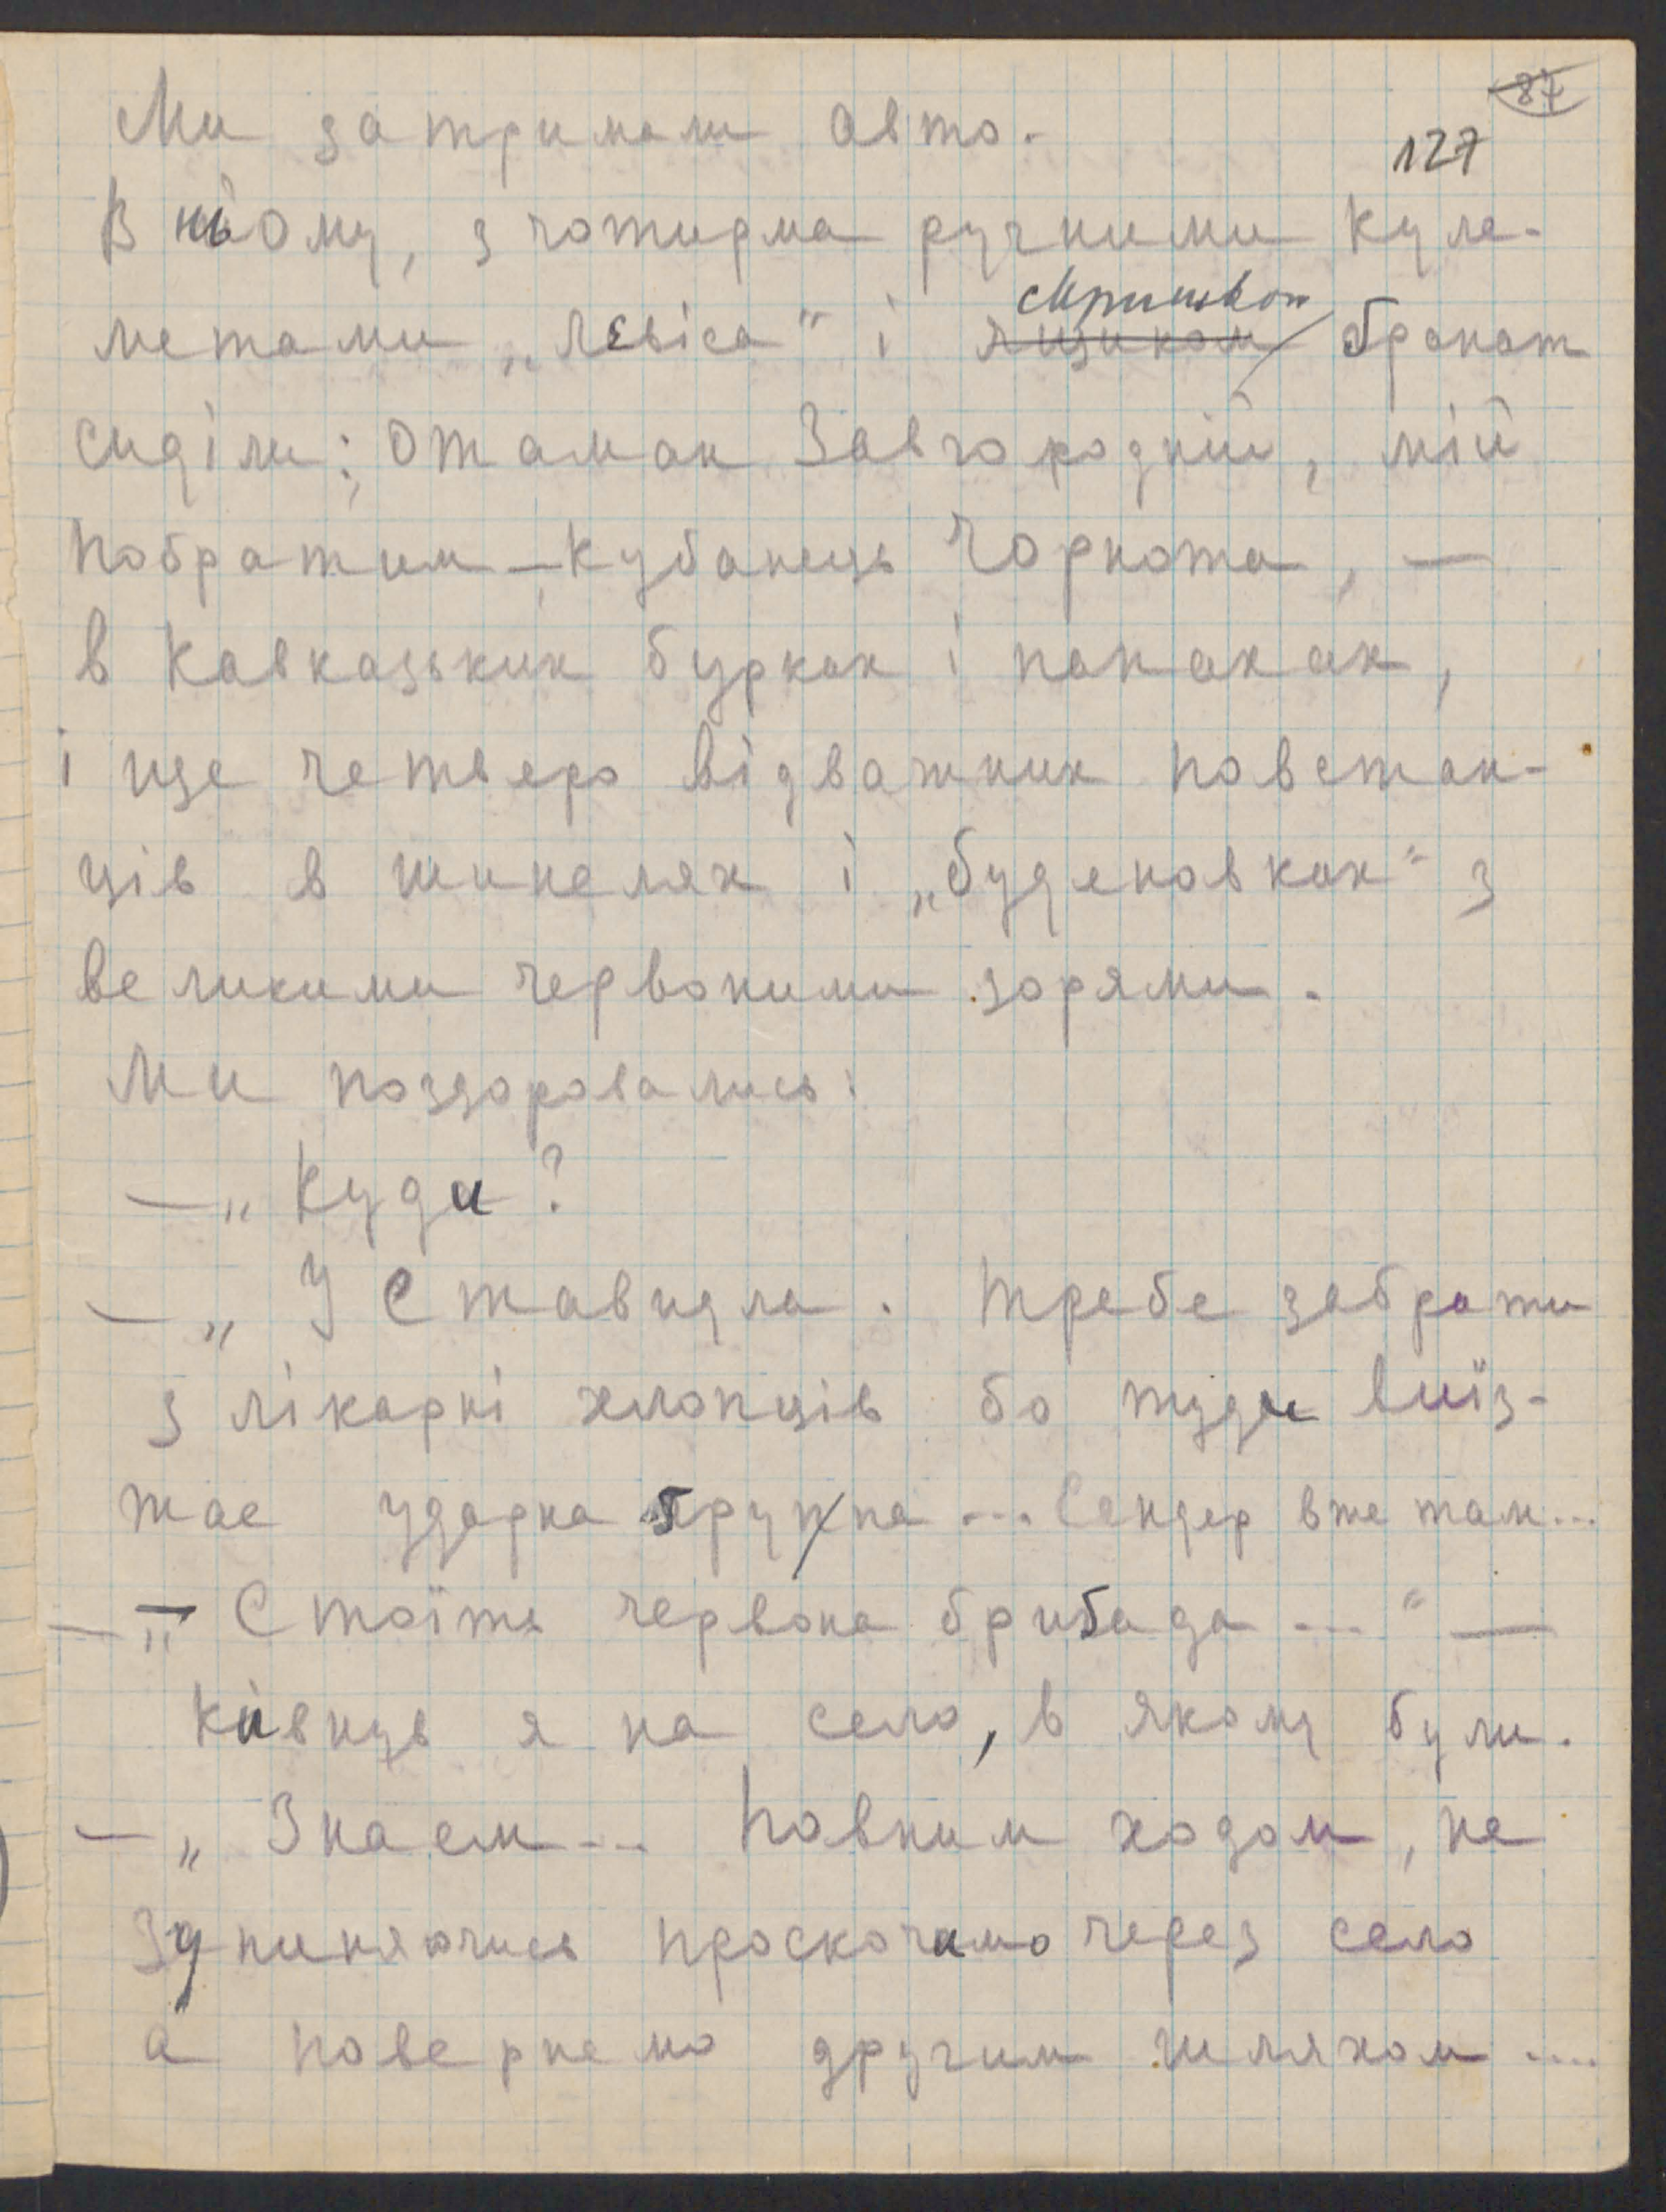 87
127
Ми затримали авто.
В ньому, з чотирма ручними куле-
метами „Левіса" і ящиком ґранат
сиділи: Отаман Завгородній, мій
побратим – кубанець Чорнота, —
в кавказьких бурках і папахах,
і ще четверо відважних повстан-
ців в шинелях і „буденовках" з
великими червоними зорями.
Ми поздоровались:
— „Куди?
— „У Ставидла. Треба забрати
з лікарні хлопців бо туди виїз-
жає ударна ґрупа... Сендер вже там...
— „Стоїть червона бриґада..." —
кивнув я на село, в якому були.
— „Знаєм... Повним ходом, не
зупиняючись проскочимо через село
а повернемо другим шляхом....